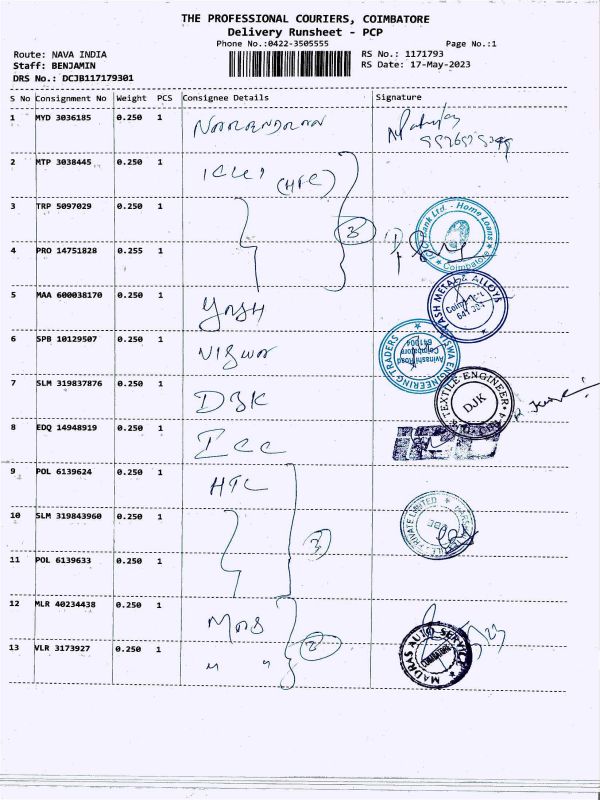 THE PROFESSIONAL COURIERS, COIMBATORE
Delivery Runsheet - PCP
Phone No.:0422-3505555 Page No.:1
Route: NAVA INDIA RS No.: 1171793
Staff: BENJAMIN RS Date: 17-May-2023
DRS No.: DCJB117179301
S No Consignment No Weight PCS Consignee Details Signature
1 MYD 3036185 0.250 1
2 MTP 3038445 0.250 1 ICICI (HFC)
3 TRP 5097029 0.250 1 3
ICICI Bank Ltd. - Home Loans Coimbatore
4 PRO 14751828 0.255 1
5 MAA 600038170 0.250 1 YASH
YASH METAL & ALLOYS
6 SPB 10129507 0.250 1
VISWA ENGINEERING TRADERS Avinashi Road Coimbatore 641004
7 SLM 319837876 0.250 1 DJK
TEXTILE ENGINEER DJK
8 EDQ 14948919 0.250 1 ICC
9 POL 6139624 0.250 1 HTC
10 SLM 319843960 0.250 1 3
PRIVATE LIMITED
11 POL 6139633 0.250 1
12 MLR 40234438 0.250 1 2
13 VLR 3173927 0.250 1 " "
MADRAS AUTO SERVICE